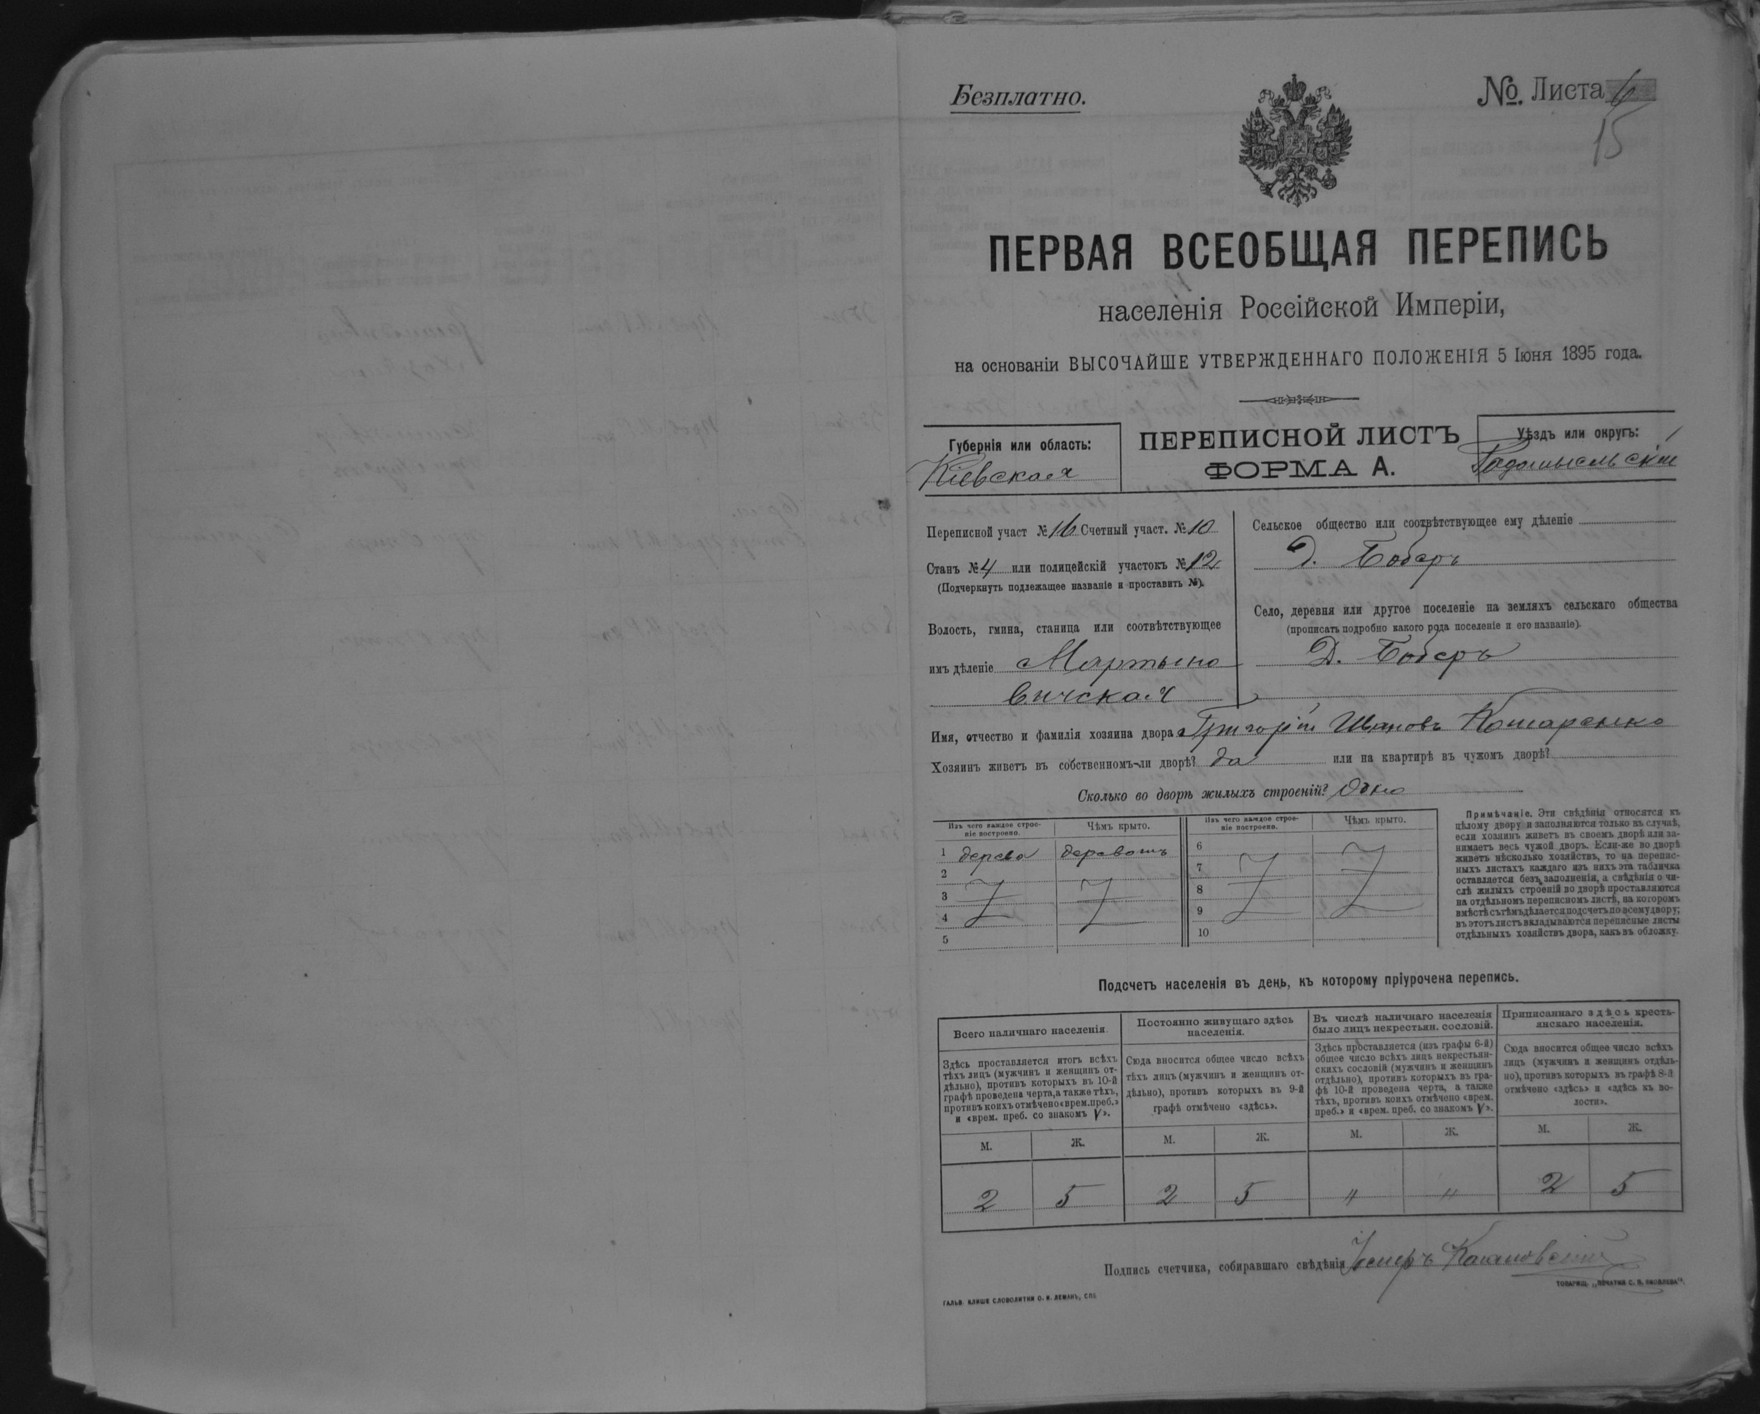 Безплатно.
№ Листа 6
15
ПЕРВАЯ ВСЕОБЩАЯ ПЕРЕПИСЬ
населенія Россійской Имперіи,
на основаніи ВЫСОЧАЙШЕ УТВЕРЖДЕННАГО ПОЛОЖЕНІЯ 5 Іюня 1895 года.
Губернія или область:
Кіевская
ПЕРЕПИСНОЙ ЛИСТЪ
ФОРМА А.
Уѣздъ или округъ:
Радомысльскій
Переписной участ № 16 Счетный участ. № 10
Станъ № 4 или полицейскій участокъ № 12
(Подчеркнуть подлежащее названіе и проставить №).
Волость, гмина, станица или соотвѣтствующее
имъ дѣленіе Мартыно
вичская
Сельское общество или соотвѣтствующее ему дѣленіе
Д. Боберъ
Село, деревня или другое поселеніе на земляхъ сельскаго общества
(прописать подробно какого рода поселеніе и его названіе).
Д. Боберъ
Имя, отчество и фамилія хозяина двора Григорій Ивановъ Комаренко
Хозяинъ живетъ въ собственномъ-ли дворѣ? да или на квартирѣ въ чужомъ дворѣ?
Сколько во дворѣ жилыхъ строеній? Одно
Изъ чего каждое строе-
ніе построено.
Чѣмъ крыто.
Изъ чего каждое строе-
ніе построено.
Чѣмъ крыто.
1 дерева деревомъ
2
3
4
5
6
7
8
9
10
Примѣчаніе. Эти свѣдѣнія относятся къ
цѣлому двору и заполняются только въ случаѣ,
если хозяинъ живетъ въ своемъ дворѣ или за-
нимаетъ весь чужой дворъ. Если-же во дворѣ
живетъ нѣсколько хозяйствъ, то на перепис-
ныхъ листахъ каждаго изъ нихъ эта табличка
оставляется безъ заполненія, а свѣдѣнія о чи-
слѣ жилыхъ строеній во дворѣ проставляются
на отдѣльномъ переписномъ листѣ, на которомъ
вмѣстѣ съ тѣмъ дѣлается подсчетъ по всему двору;
въ этотъ листъ вкладываются переписные листы
отдѣльныхъ хозяйствъ двора, какъ въ обложку.
Подсчетъ населенія въ день, къ которому пріурочена перепись.
Всего наличнаго населенія.
Здѣсь проставляется итогъ всѣхъ
тѣхъ лицъ (мужчинъ и женщинъ от-
дѣльно), противъ которыхъ въ 10-й
графѣ проведена черта, а также тѣхъ,
противъ коихъ отмѣчено «врем. преб.»
и «врем. преб. со знакомъ V».
Постоянно живущаго здѣсь
населенія.
Сюда вносится общее число всѣхъ
тѣхъ лицъ (мужчинъ и женщинъ от-
дѣльно), противъ которыхъ въ 9-й
графѣ отмѣчено «здѣсь».
Въ числѣ наличнаго населенія
было лицъ некрестьян. сословій.
Здѣсь проставляется (изъ графы 6-й)
общее число всѣхъ лицъ некрестьян-
скихъ сословій (мужчинъ и женщинъ
отдѣльно), противъ которыхъ въ гра-
фѣ 10-й проведена черта, а также
тѣхъ, противъ коихъ отмѣчено «врем.
преб.» и «врем. преб. со знакомъ V».
Приписаннаго здѣсь кресть-
янскаго населенія.
Сюда вносится общее число всѣхъ
лицъ (мужчинъ и женщинъ отдѣль-
но), противъ которыхъ въ графѣ 8-й
отмѣчено «здѣсь» и «здѣсь къ во-
лости».
М. Ж. М. Ж. М. Ж. М. Ж.
2 5 2 5 " " 2 5
Подпись счетчика, собиравшаго свѣдѣнія
ГАЛЬВ. КЛИШЕ СЛОВОЛИТНИ О. И. ЛЕМАНЪ, СПБ.
ТОВАРИЩ. „ПЕЧАТНЯ С. П. ЯКОВЛЕВА".